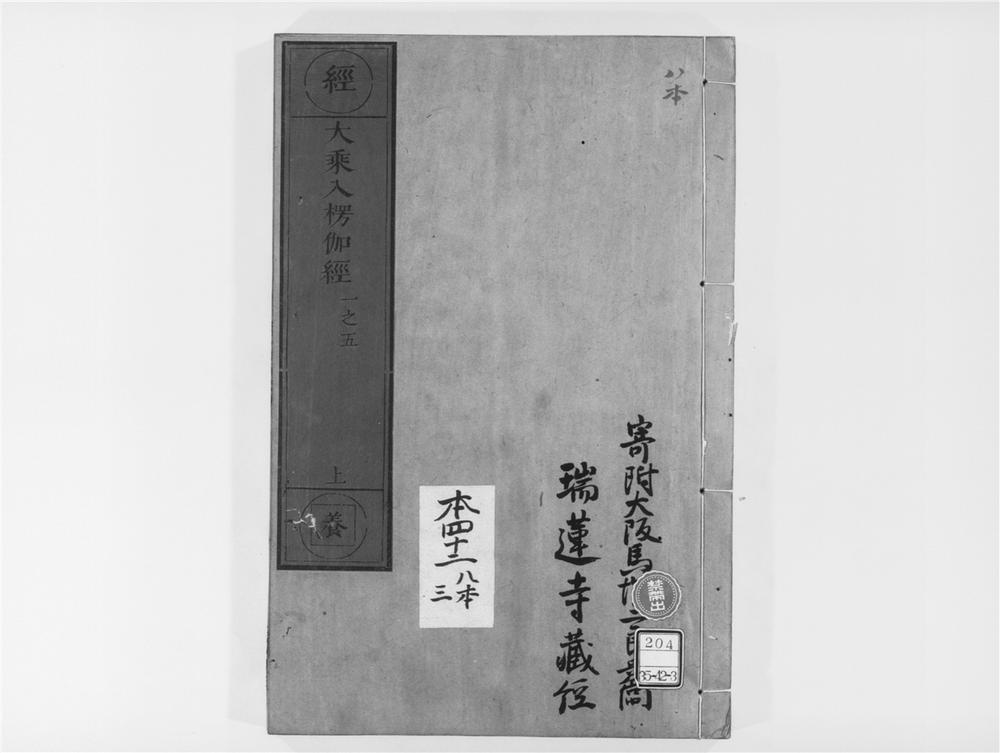 八本
寄附大阪馬
瑞蓮寺藏経
禁帶出
204
35-42-3
本四十二
八本
三
經
大乘入楞伽經
一之五
上
養